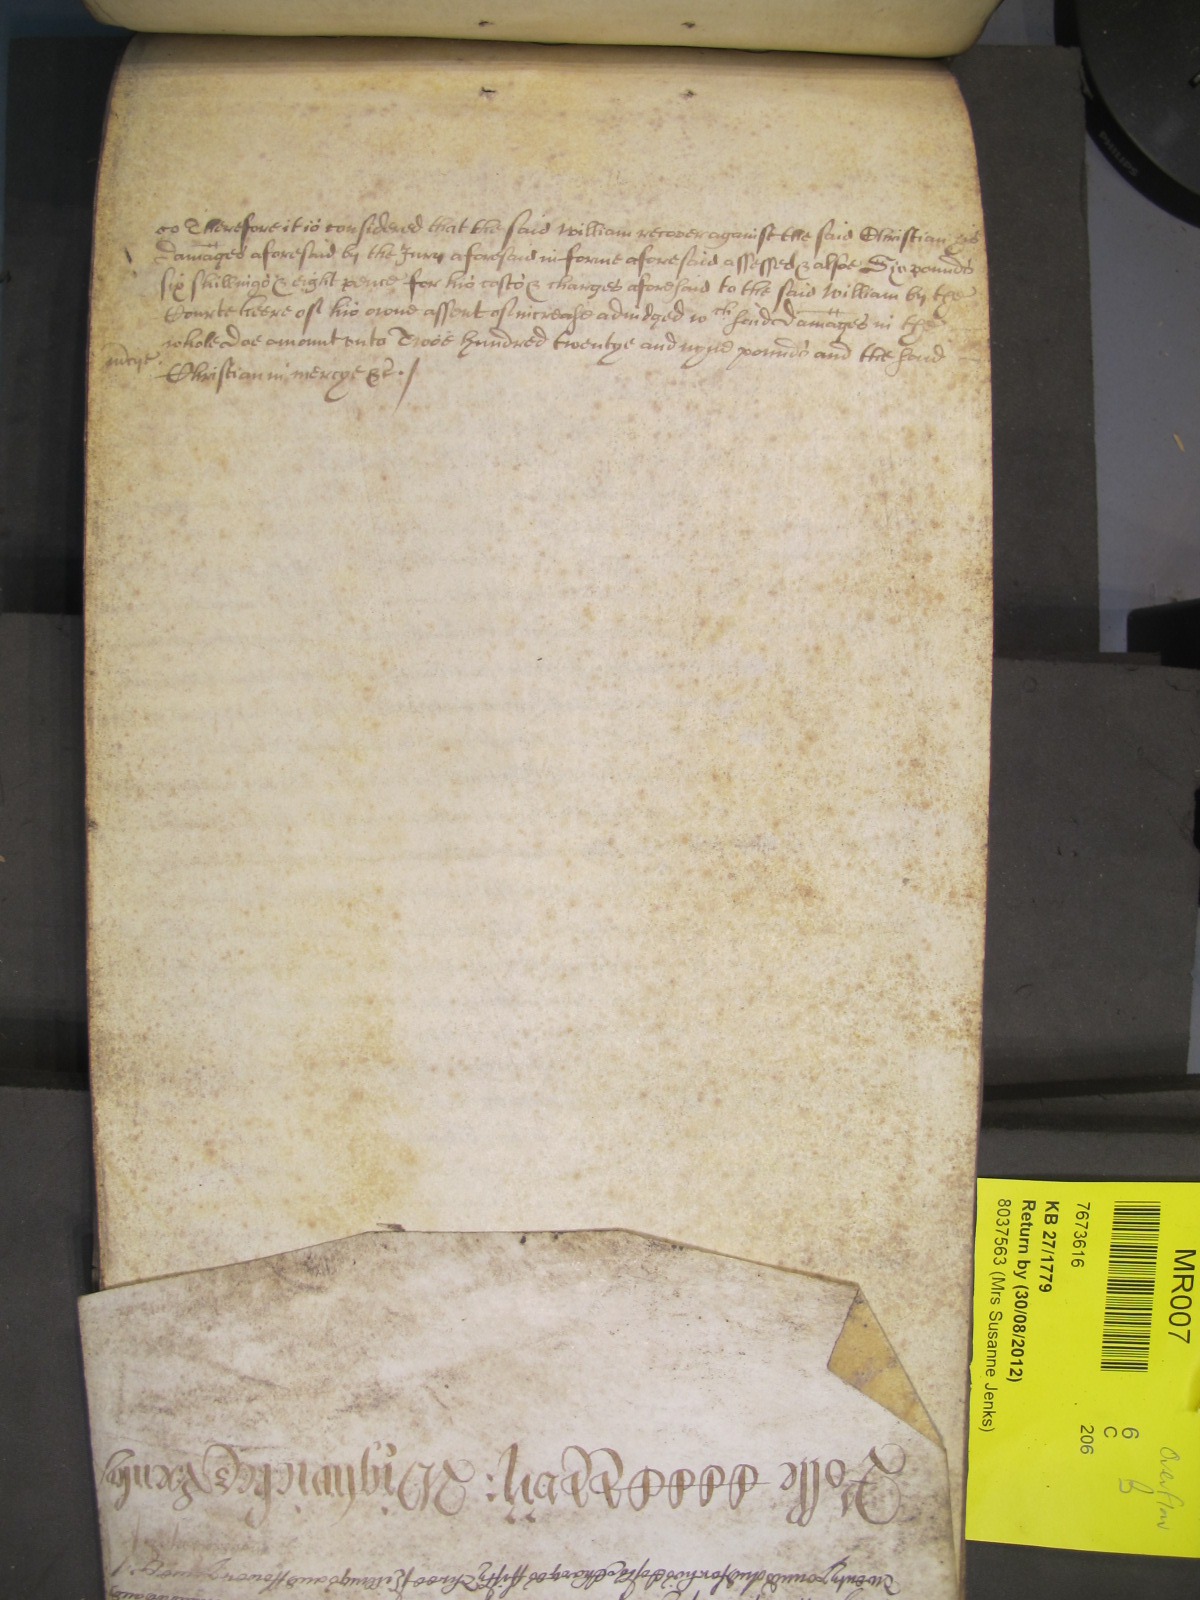 co Therefore it is considered that the said William recover against the said Christian his
Damages aforesaid by the Jury aforesaid in forme aforesaid assessed & alsoe Six pounds
six shillings & eight pence for his costs & charges aforesaid to the said William by the
Courte heere of his owne assent of increase adiudged wch said Damages in the
whole doe amount unto Twoe hundred twentye and nyne pounds and the said
mercye
Christian in mercye &c.
Rolle
Wightwicke
MR007
7673616
KB 27/1779
Return by (30/08/2012)
8037563 (Mrs Susanne Jenks)
6
C
206
Overflow
B
PHILIPS